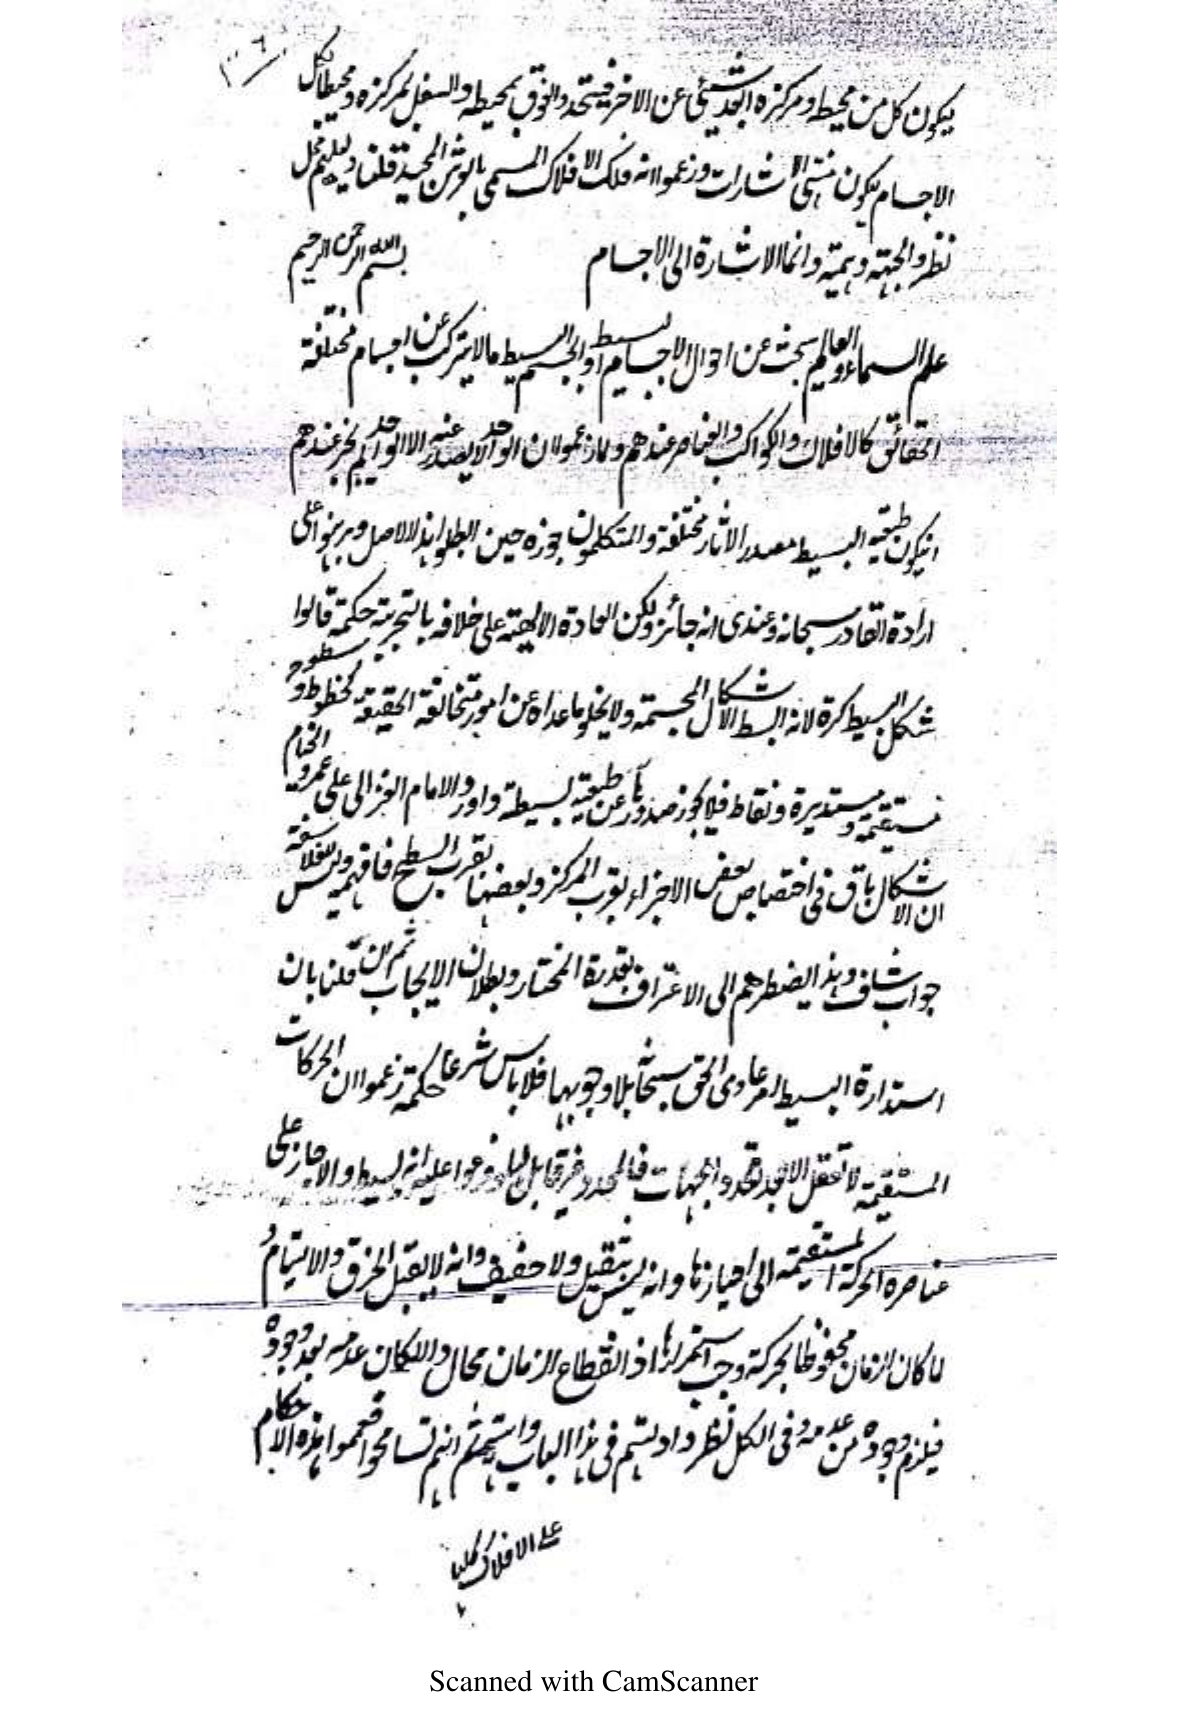 يكون كل من محيطه ومركزه ابعد شيئ عن الاخر فيتحدد الفوق بمحيطه والسفل بمركزه ومحيطا بكل
الاجسام ليكون منتهى الاشارات وزعموا انه فلك الافلاك المسمى بالعرش المجيد قلنا دليلهم محل
نظر والجهة وهمية وانما الاشارة الى الاجسام
بسم الله الرحمن الرحيم
علم السماء والعالم يبحث عن احوال الاجسام البسيطة والجسم البسيط مالا يتركب عن اجسام مختلفة
الحقائق كالافلاك والكواكب والعناصر عندهم ولما زعموا ان الواحد لا يصدر عنه الا الواحد لم يجز عندهم
ان يكون طبيعة البسيط مصدر الآثار مختلفة والمتكلمون جوزه حين ابطلوا هذا الاصل وبرهنوا على
ارادة القادر سبحانه وعندى انه جائز ولكن العادة الالهية على خلافه بالتجربة حكمة قالوا
شكل البسيط كرة لانه ابسط الاشكال المجسمة ولا يخلو ما عداه عن امور متخالفة الحقيقة كخطوط وسطوح
مستقيمة ومستديرة ونقاط فلا يجوز صدورها عن طبيعة بسيطة واورد الامام الغزالى على عمرو الخيام
ان الاشكال باق فى اختصاص بعض الاجزاء بقرب المركز وبعضها بقرب السطح فافهمه وليس للفلاسفة
جواب شاف وهذا يضطرهم الى الاعتراف بقدرة المختار وبطلان الايجاب ثم ان قلنا بان
استدارة البسيط امر عادى الحق سبحانه بلا وجوبها فلا باس شرعا حكمة زعموا ان الحركات
المستقيمة لا تعقل الا بعد تحدد الجهات فالمحدد غير قابل لها وفرعوا عليه انه بسيط والا جاز على
عناصره الحركة المستقيمة الى احيازها وانه ليس بثقيل ولا خفيف وانه لا يقبل الخرق والالتيام و
لما كان الزمان محفوظا بحركته وجب استمرارها اذ انقطاع الزمان محال والا لكان عدمه بعد وجوده
فيلزم وجوده من عدمه وفى الكل نظر وادلتهم فى هذا الباب واهية ثم انهم تسامحوا فعمموا هذه الاحكام
على الافلاك كلها